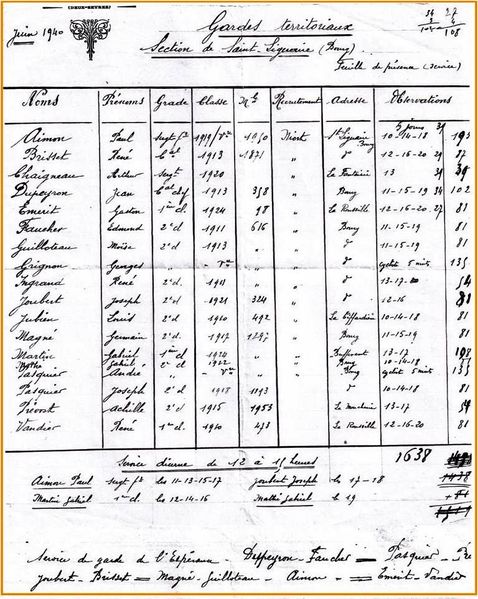 (DEUX-SEVRES)
Juin 1940
Gardes territoriaux
Section de Saint-Liguaire (Bourg)
Feuille de présence (service)
34 27
3 4
102 108
Noms Prénoms Grade Classe Nº Recrutement Adresse Observations
Aimon Paul Sergt 1919 1050 Niort St Liguaire Bourg 5 jours 10-14-18 39 193
Brisset René Cal 1913 1871 " d° 12-16-20 29 87
Chaigneau Arthur Sergt 1920 " La Fontaine 13 39 39
Dupeyron Jean Cal 1913 358 " Bourg 11-15-19 34 102
Emerit Gaston 1ère cl. 1924 98 " La Roussille 12-16-20 27 81
Faucher Edmond 2e cl 1911 616 " Bourg 11-15-19 81
Guilloteau Moïse 2e cl 1913 " d° 11-15-19 81
Grignon Georges " " d° cycliste 5 nuits 135
Ingrand René 2e cl 1911 " d° 13-17-20 54
Joubert Joseph 2e cl 1921 324 " d° 12-16 81
Julien Louis 2e cl 1910 492 " 10-14-18 81
Magné Germain 2e cl 1917 1297 " Bourg 11-15-19 81
Martin Gabriel 1ère cl 1924 " " 13-17 108
Mathé Gabriel 2e cl 1922 " Bourg 10-14-18
Pasquier André " " Bourg cycliste 5 nuits 135
Pasquier Joseph 2e cl 1918 1193 d° 10-14-18 81
Prévost Achille 2e cl 1915 1953 13-17 54
Vandier René 1ère cl. 1910 473 " La Roussille 12-16-20 81
Service diurne de 12 à 15 heures 1638
Aimon Paul sergt les 11-13-15-17 Joubert Joseph les 17-18 1438
Martin Gabriel 1ère cl. les 12-14-16 Mathé Gabriel le 19
Service de garde de l'Espérance - Despeyron - Faucher = Pasquier - Pré
Joubert - Brisset = Magné - Guilloteau - Aimon = Emerit - Vandier